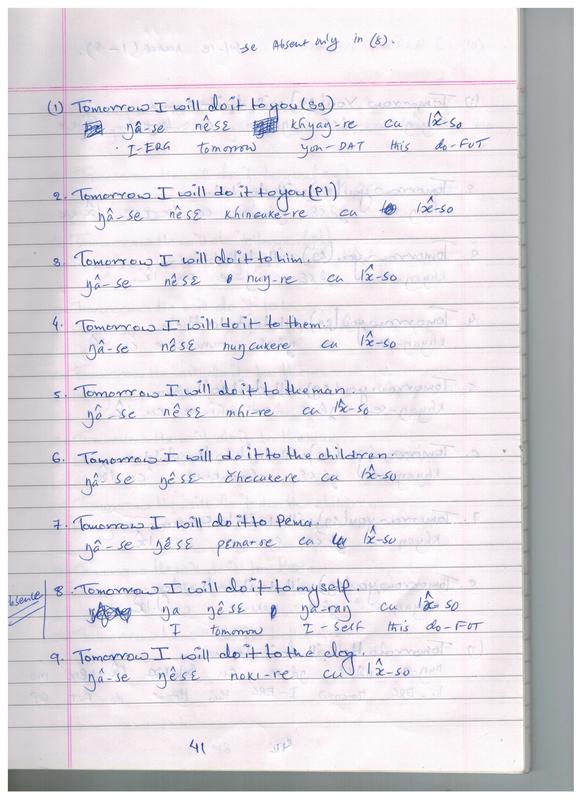 -se Absent only in (8).
(1) Tomorrow I will do it to you (sg)
ŋâ-se nêsɛ khyaŋ-re cu lx̂-so
I-ERG tomorrow you-DAT this do-FUT
2. Tomorrow I will do it to you (Pl)
ŋâ-se nêsɛ khincuke-re cu lx̂-so
3. Tomorrow I will do it to him.
ŋâ-se nêsɛ nuŋ-re cu lx̂-so
4. Tomorrow I will do it to them.
ŋâ-se nêsɛ nuŋcukere cu lx̂-so
5. Tomorrow I will do it to the man
ŋâ-se nêsɛ mhi-re cu lx̂-so
6. Tomorrow I will do it to the children.
ŋâ-se ŋêsɛ čhecukere cu lx̂-so
7. Tomorrow I will do it to Pema
ŋâ-se ŋêsɛ pema-re cu lx̂-so
absence
8. Tomorrow I will do it to myself.
ŋa ŋêsɛ ŋa-raŋ cu lx̂-so
I tomorrow I-self this do-FUT
9. Tomorrow I will do it to the dog
ŋâ-se ŋêsɛ noki-re cu lx̂-so
41